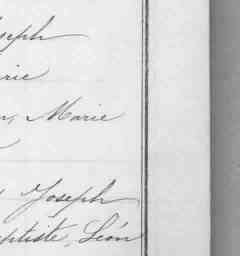 oseph
rie
, Marie
Joseph
ptiste, Léon